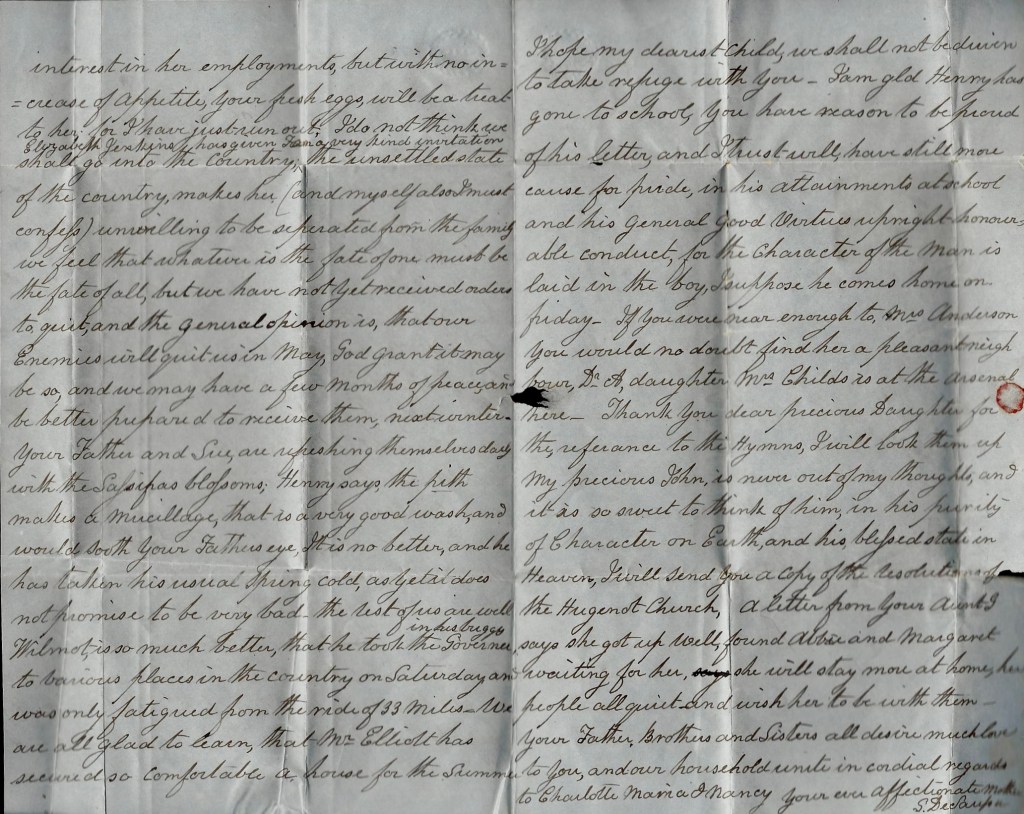 interest in her employments, but with no in=
=crease of Appetite, Your fresh eggs, will be a treat
to her, for I have just run out; I do not think we
Elizabeth Jenkins, has given a very kind invitation
shall go into the Country, the unsettled state
of the country, makes her (and myself also I must
confess) unwilling to be seperated from the family
we feel that whatever is the fate of one must be
the fate of all, but we have not yet received orders
to quit, and the general opinion is, that our
Enemies will quit us in May, God grant it may
be so, and we may have a few Months of peace, and
be better prepared to receive them, next winter-
Your Father and Sue, are refreshing themselves daily
with the Sassifras blossoms; Henry says, the pith
makes a Mucillage, that is a very good wash, and
would sooth Your Fathers eye, It is no better, and he
has taken his usual Spring cold, as yet it does
not promise to be very bad- the rest of us are well
in his buggy
Wilmot, is so much better, that he took the Governer,
to various places in the country on Saturday and
was only fatigued from the ride of 33 miles- We
are all glad to learn, that Mr Elliott has
secured so comfortable a house for the Summer
I hope my dearest Child, we shall not be driven
to take refuge with You - I am gld Henry has
gone to school, You have reason to be proud
of his letter, and I trust will, have still more
cause for pride, in his attainments at school
and his General Good Virtues upright honour=
able conduct, for the Character of the Man is
laid in the boy, I suppose he comes home on
friday- If You were near enough to, Mrs Anderson
You would no doubt find her a pleasant neigh
bour, Dr A, daughter Mrs Childs is at the Arsenal
here- Thank You dear precious Daughter for
the, referance to the Hymns, I will look them up
My precious John, is never out of my thoughts, and
it is so sweet to think of him, in his purity
of Character on Earth, and his, blessed state in
Heaven, I will send you a copy of the resolutions of
the Hugenot Church, A letter from Your Aunt I
says she got up well, found and Margaret
waiting for her, she will stay more at home, her
people all quiet and wish her to be with them-
Your Father, Brothers and Sisters all desire much love
to You, and our household unite in cordial regards
to Charlotte Maria & Nancy Your ever affectionate Mother
S. DeSaussure